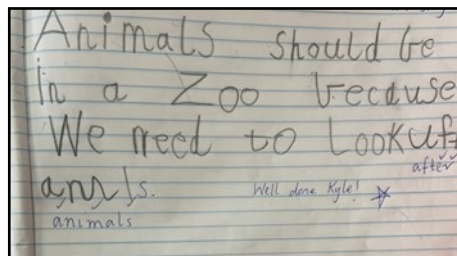 Animals should be
in a Zoo because
We need to Lookuft
after
anrls.
Well done Kyle!
animals